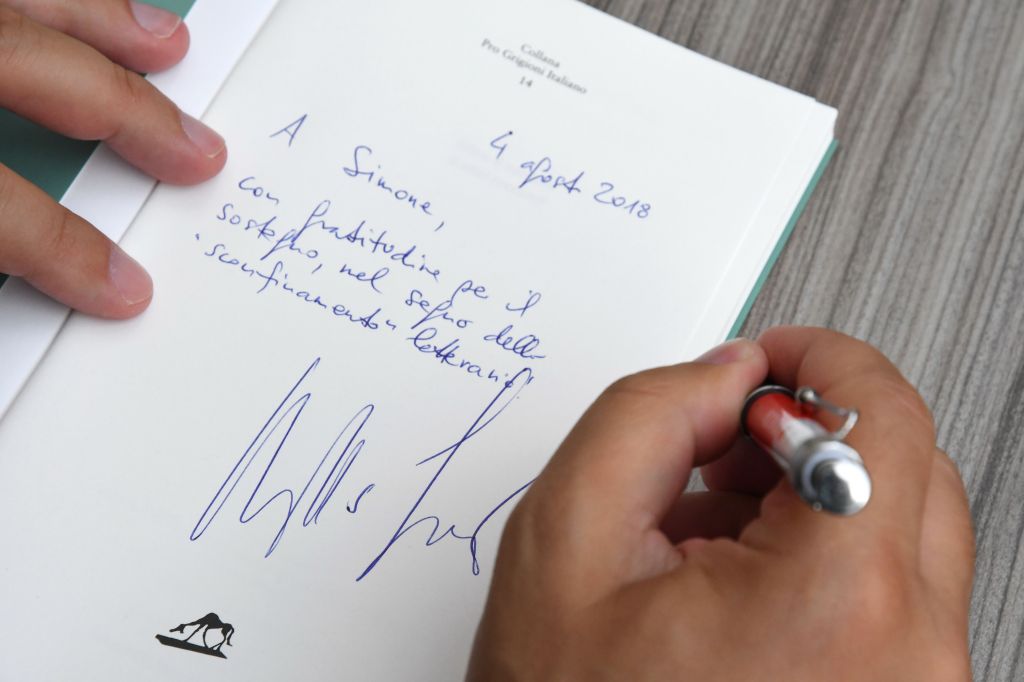 Collana
Pro Grigioni Italiano
14
4 agosto 2018
A Simone,
con gratitudine per il
sostegno, nel segno dello
"sconfinamento
letterario"